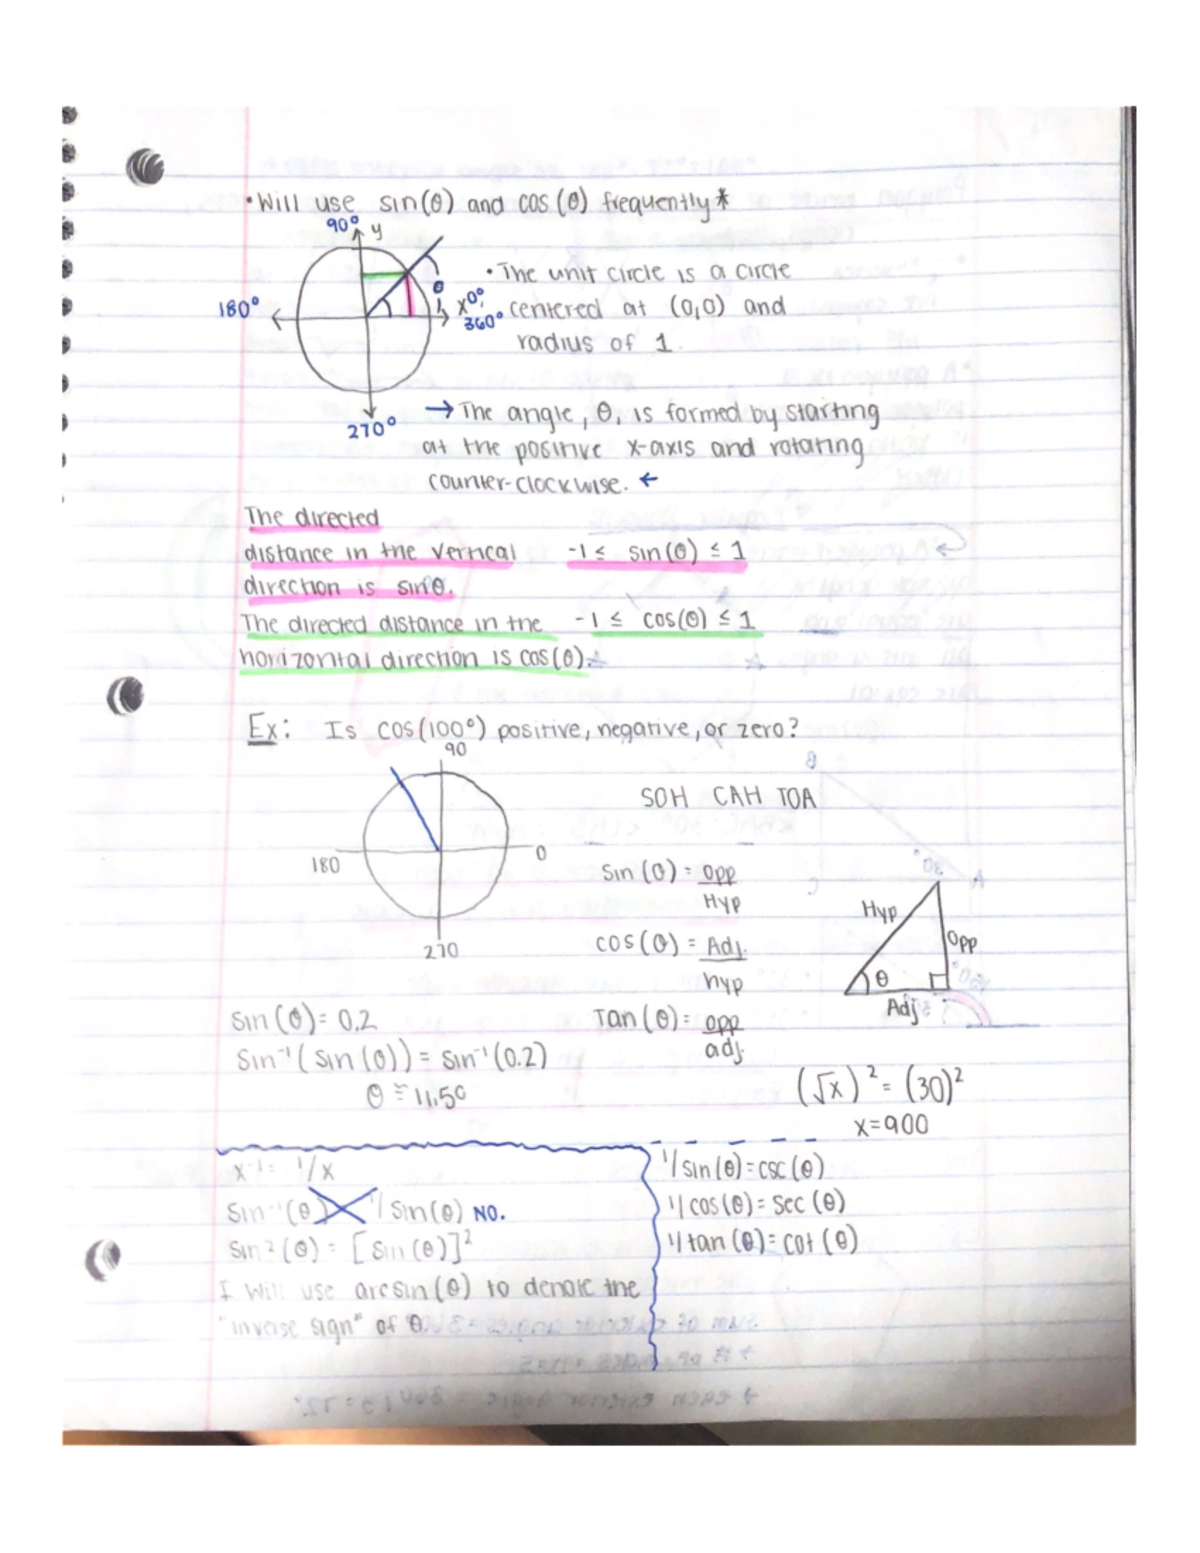 •Will use sin(θ) and cos(θ) frequently*
90° y
180°
θ
x 0°, 360°
270°
•The unit circle is a circle
centered at (0,0) and
radius of 1.
→ The angle, θ, is formed by starting
at the positive x-axis and rotating
counter-clockwise. ←
The directed
distance in the vertical -1 ≤ sin(θ) ≤ 1
direction is sinθ.
The directed distance in the -1 ≤ cos(θ) ≤ 1
horizontal direction is cos(θ).
Ex: Is cos(100°) positive, negative, or zero?
90
180
0
270
SOH CAH TOA
sin(θ) = opp/Hyp
cos(θ) = Adj./hyp
Tan(θ) = opp/adj.
Hyp
Opp
θ
Adj
sin(θ) = 0.2
sin⁻¹(sin(θ)) = sin⁻¹(0.2)
θ ≈ 11.5°
(√x)² = (30)²
x=900
x⁻¹ = 1/x
sin⁻¹(θ) 1/sin(θ) NO.
sin²(θ) = [sin(θ)]²
I will use arcsin(θ) to denote the
"inverse sign" of θ.
1/sin(θ) = csc(θ)
1/cos(θ) = sec(θ)
1/tan(θ) = cot(θ)